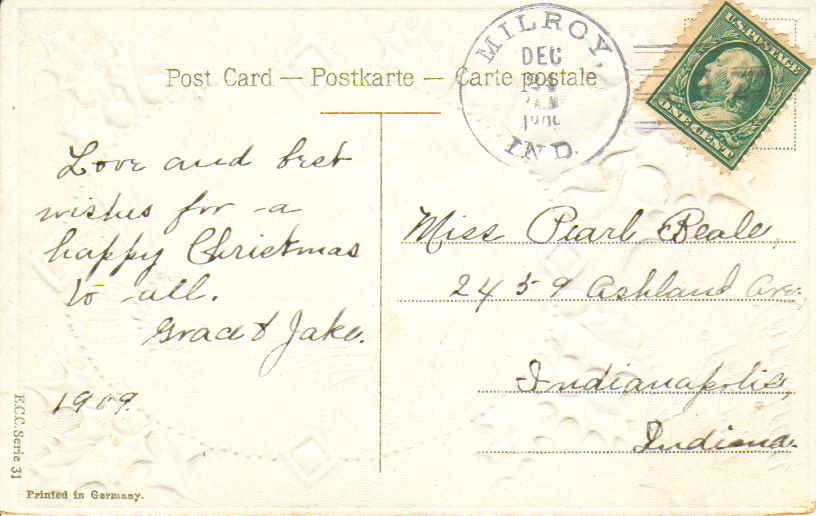 Post Card — Postkarte — Carte postale
MILROY.
DEC
IND.
U.S. POSTAGE
ONE CENT
Love and best
wishes for a
happy Christmas
to all.
Grace & Jake.
1909.
Miss Pearl Beale,
2459 Ashland Ave.
Indianapolis,
Indiana.
E.C.C. Serie 31
Printed in Germany.